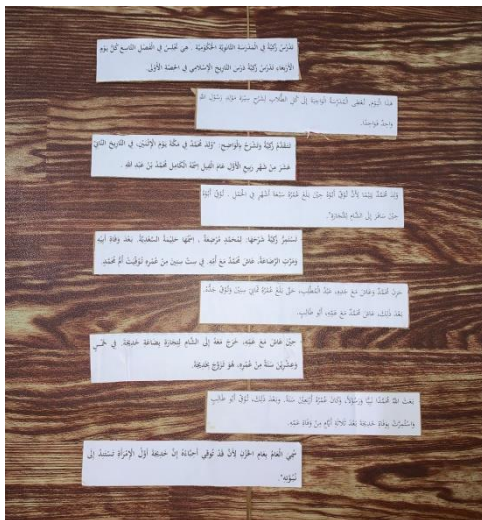 تَدْرُسُ رُكَيَّةُ فِي الْمَدْرَسَةِ الثَّانَوِيَّةِ الْحُكُوْمِيَّةِ . هِيَ تَجْلِسُ فِي الْفَصْلِ التَّاسِعِ كُلَّ يَوْمِ
الْأَرْبِعَاءِ تَدْرُسُ رُكَيَّةُ دَرْسَ التَّارِيْخِ الْإِسْلَامِي فِي الحِصَّةِ الْأُوْلَى.
هَذَا الْيَوْم، تُعْطِي الْمُدَرِّسَةُ الْوَاجِبَةَ إِلَى كُلِّ الطُّلَّابِ لِشَرْحِ سِيْرَة مَوْلِد رَسُوْلِ الله
وَاحِدٌ فَوَاحِدًا.
تَتَقَدَّمُ رُكَيَّةُ وَتَشْرَحُ بِالْوَاضِحِ. "وُلِدَ مُحَمَّدٌ فِي مَكَّةَ يَوْمَ الإِثْنَيْنِ، فِي التَّارِيخِ الثَّانِيَ
عَشَرَ مِنْ شَهْرِ رَبِيعِ الْأَوَّلِ عَامَ الْفِيلِ اِسْمُهُ الْكَامِلُ مُحَمَّدُ بْنُ عَبْدِ اللهِ .
وُلِدَ مُحَمَّدٌ يَتِيْمًا لِأَنَّ تُوُفِّيَ أَبُوْهُ حِيْنَ بَلَغَ عُمْرُهُ سَبْعَةَ أَشْهُرٍ فِي الْحَمْلِ . تُوُفِّيَ أَبُوْهُ
حِيْنَ سَافَرَ إِلَى الشَّامِ لِلتِّجَارَةِ".
تَسْتَمِرُّ رُكَيَّةُ شَرْحَهَا. لِمُحَمَّدٍ مُرْضِعَةٌ ، اِسْمُهَا حَلِيْمَةُ السَّعْدِيَّةُ. بَعْدَ وَفَاةِ أَبِيْهِ
وَمَرَّتِ الرَّضَاعَةُ، عَاشَ مُحَمَّدٌ مَعَ أُمِّهِ. فِي سِتِّ سِنِيْنَ مِنْ عُمْرِهِ تُوُفِّيَتْ أُمُّ مُحَمَّدٍ.
حَزِنَ مُحَمَّدٌ وَعَاشَ مَعَ جَدِّهِ، عَبْدُ الْمُطَّلِبِ، حَتَّى بَلَغَ عُمْرُهُ ثَمَانِيَ سِنِيْنَ وَتُوُفِّيَ جَدُّهُ.
بَعْدَ ذَلِكَ، عَاشَ مُحَمَّدٌ مَعَ عَمِّهِ، أَبُو طَالِبٍ.
حِيْنَ عَاشَ مَعَ عَمِّهِ، خَرَجَ مَعَهُ إِلَى الشَّامِ لِتِجَارَةِ بِضَاعَةِ خَدِيْجَةَ. فِي خَمْسٍ
وَعِشْرِيْنَ سَنَةً مِنْ عُمْرِهِ، هُوَ تَزَوَّجَ بِخَدِيْجَةَ.
بَعَثَ اللهُ مُحَمَّدًا نَبِيًّا وَرَسُوْلًا، وَكَانَ عُمْرُهُ أَرْبَعِيْنَ سَنَةً. وَبَعْدَ ذَلِكَ، تُوُفِّيَ أَبُو طَالِبٍ
وَاسْتَمَرَّتْ بِوَفَاةِ خَدِيْجَةَ بَعْدَ ثَلَاثَةِ أَيَّامٍ مِنْ وَفَاةِ عَمِّهِ.
سُمِّيَ الْعَامُ بِعَامِ الْحُزْنِ لِأَنَّ قَدْ تُوُفِّيَ أَحِبَّاءُهُ إِنَّ خَدِيْجَةَ أَوَّلُ الْإِمْرَأَةِ تَسْتَنِدُ إِلَى
نُبُوَّتِهِ".